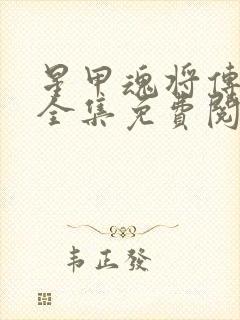 星甲魂将傳
全集免費閱
韦正發